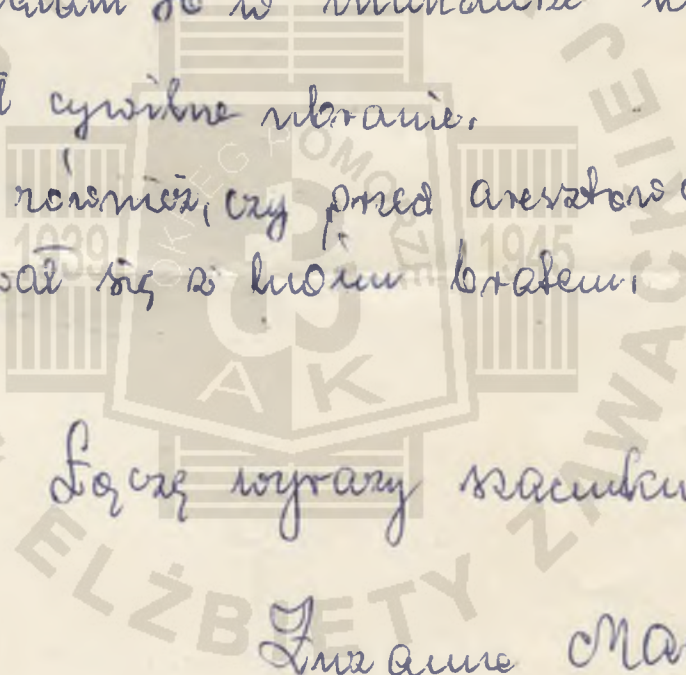 go w mundurze
cywilne ubranie.
również, czy przed aresztow
ał się z moim bratem.
Łączę wyrazy szacunku
Zuzanna Ma
OKRĘG POMORZE
1939 1945
AK
ELŻBIETY ZAWACKIEJ